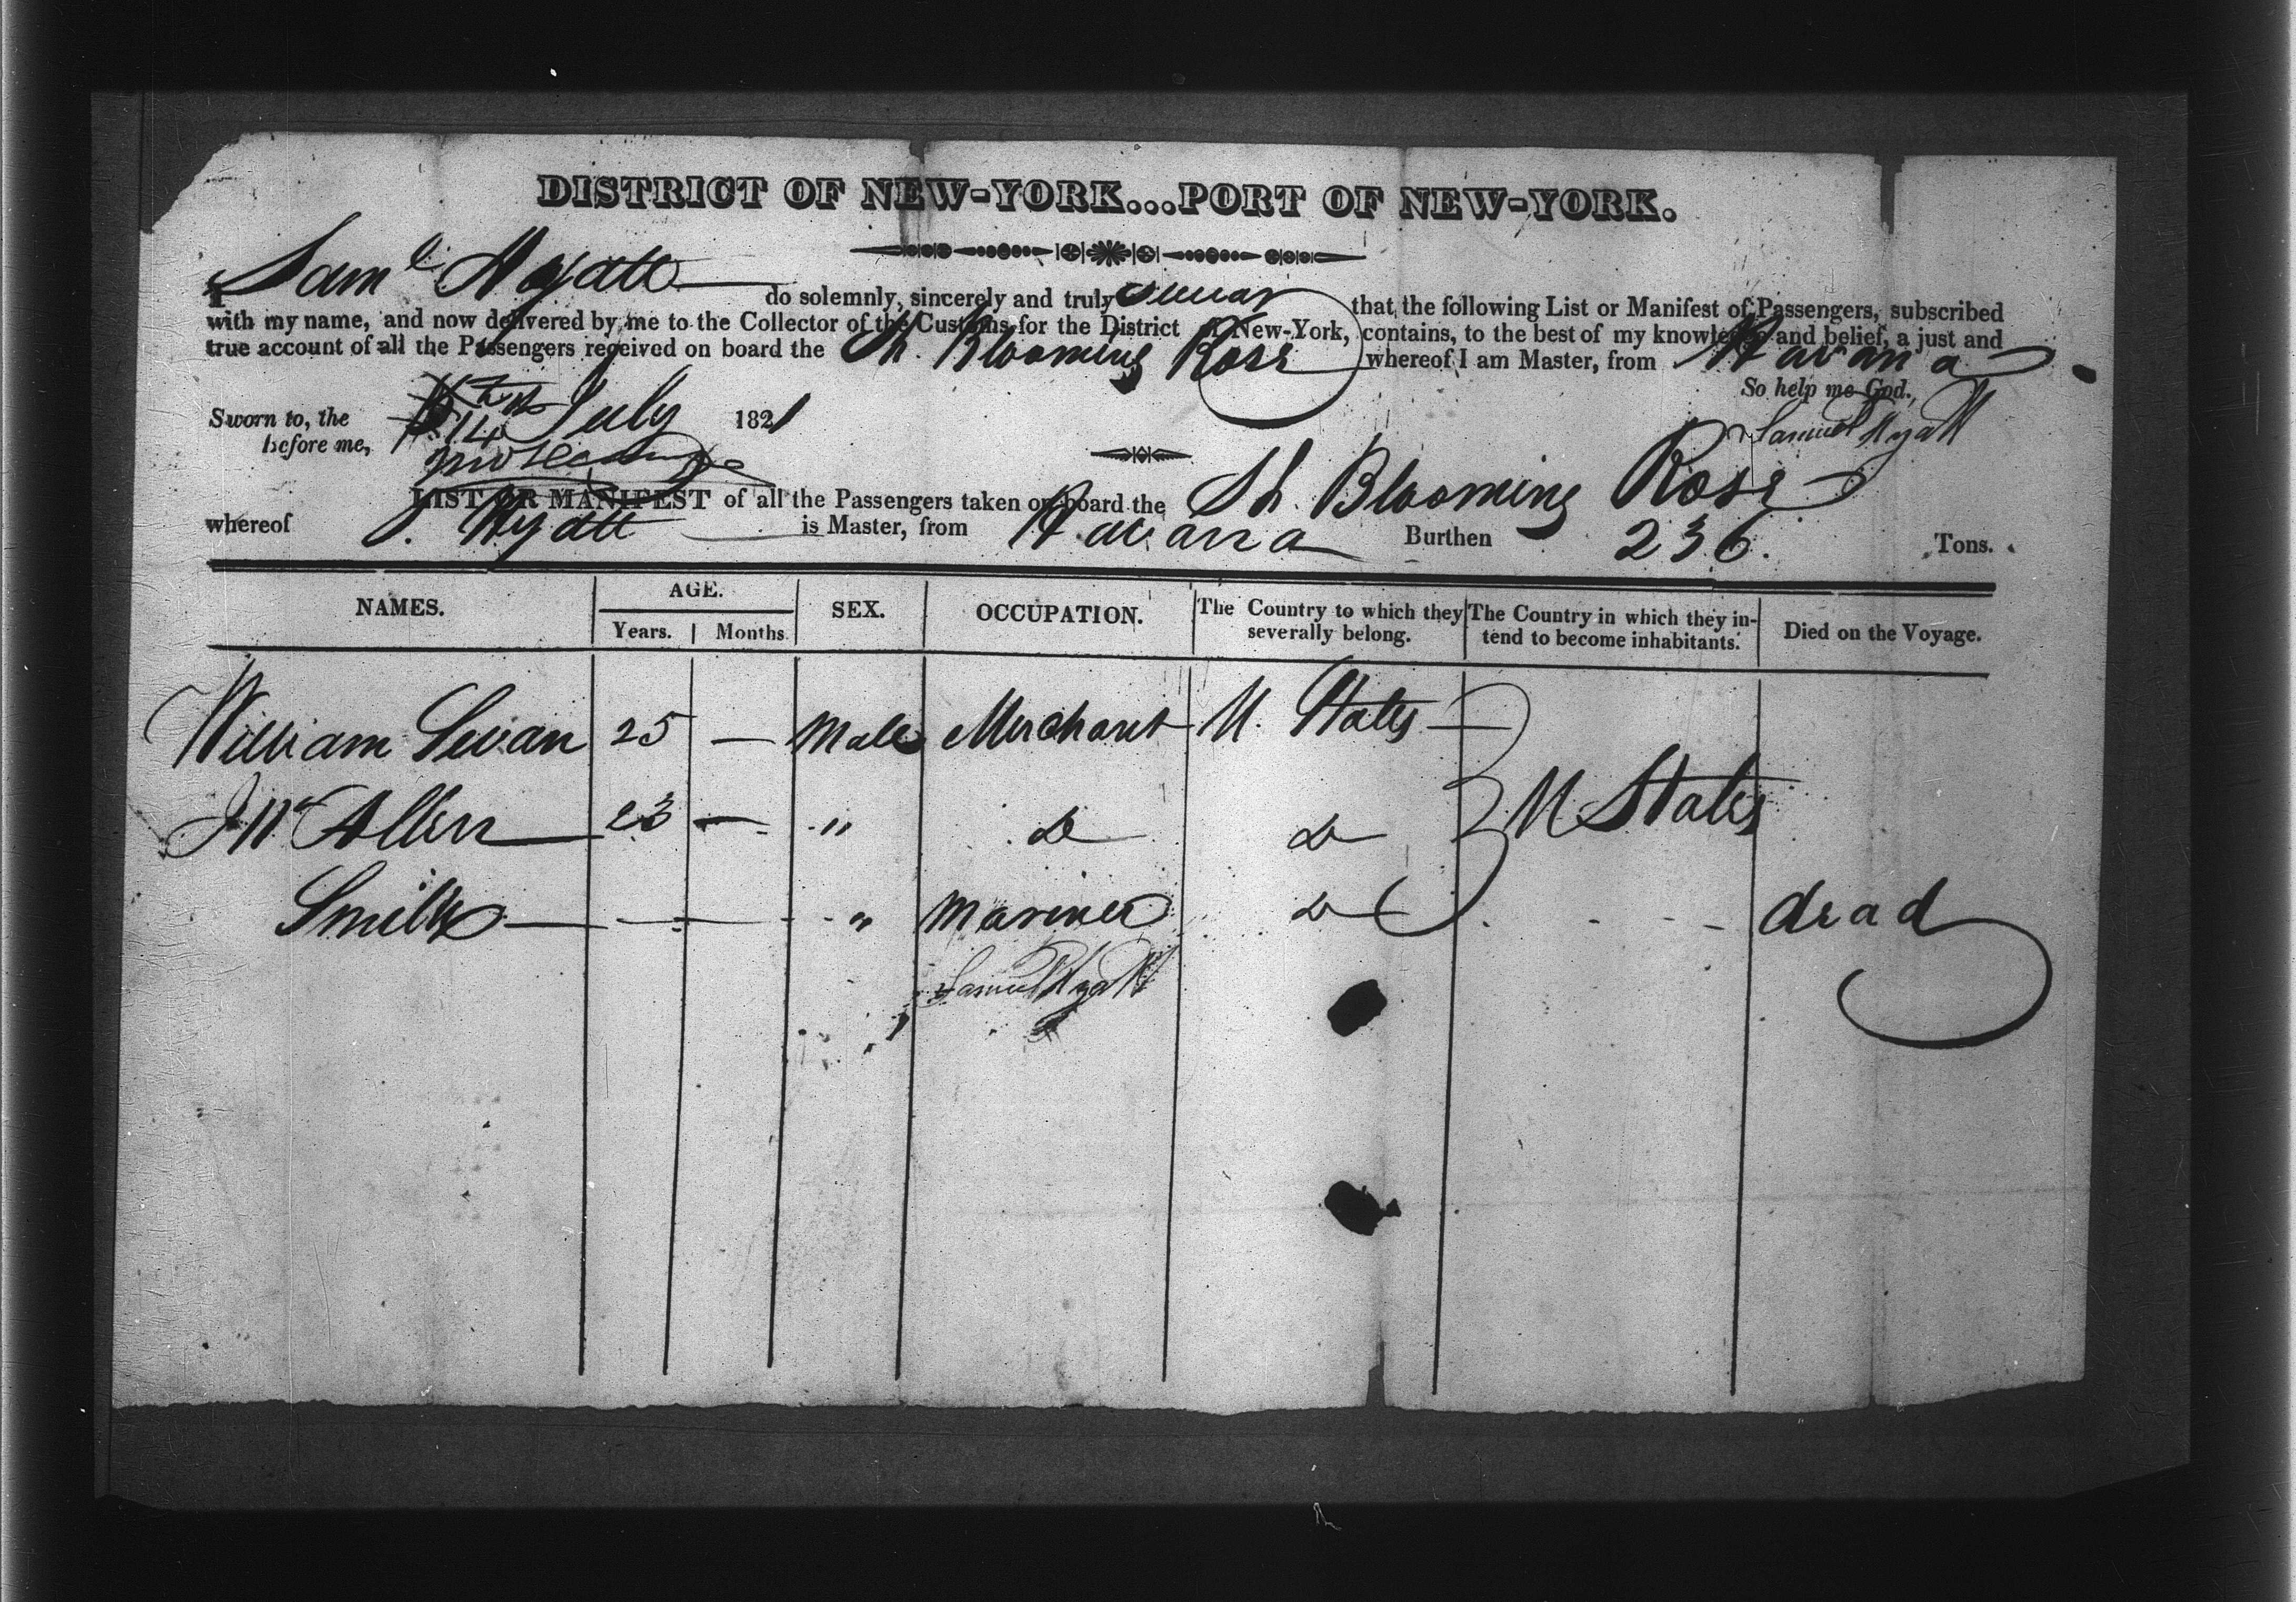 DISTRICT OF NEW-YORK...PORT OF NEW-YORK.
I Saml Hyatt do solemnly, sincerely and truly swear that the following List or Manifest of Passengers, subscribed
with my name, and now delivered by me to the Collector of the Customs for the District of New-York, contains, to the best of my knowledge and belief, a just and
true account of all the Passengers received on board the Sh. Blooming Rose whereof I am Master, from Havana
So help me God.
Sworn to, the 14 July 1821
Samuel Hyatt
before me,
LIST OR MANIFEST of all the Passengers taken on board the Sh. Blooming Rose
whereof S. Hyatt is Master, from Havana Burthen 236. Tons.
NAMES. AGE. SEX. OCCUPATION. The Country to which they severally belong. The Country in which they intend to become inhabitants. Died on the Voyage.
Years. Months.
William Swan 25 — Male Merchant U. States
J Mc Allen 23 — " Do Do U States
Smith — — " Mariner Do dead
Samuel Hyatt